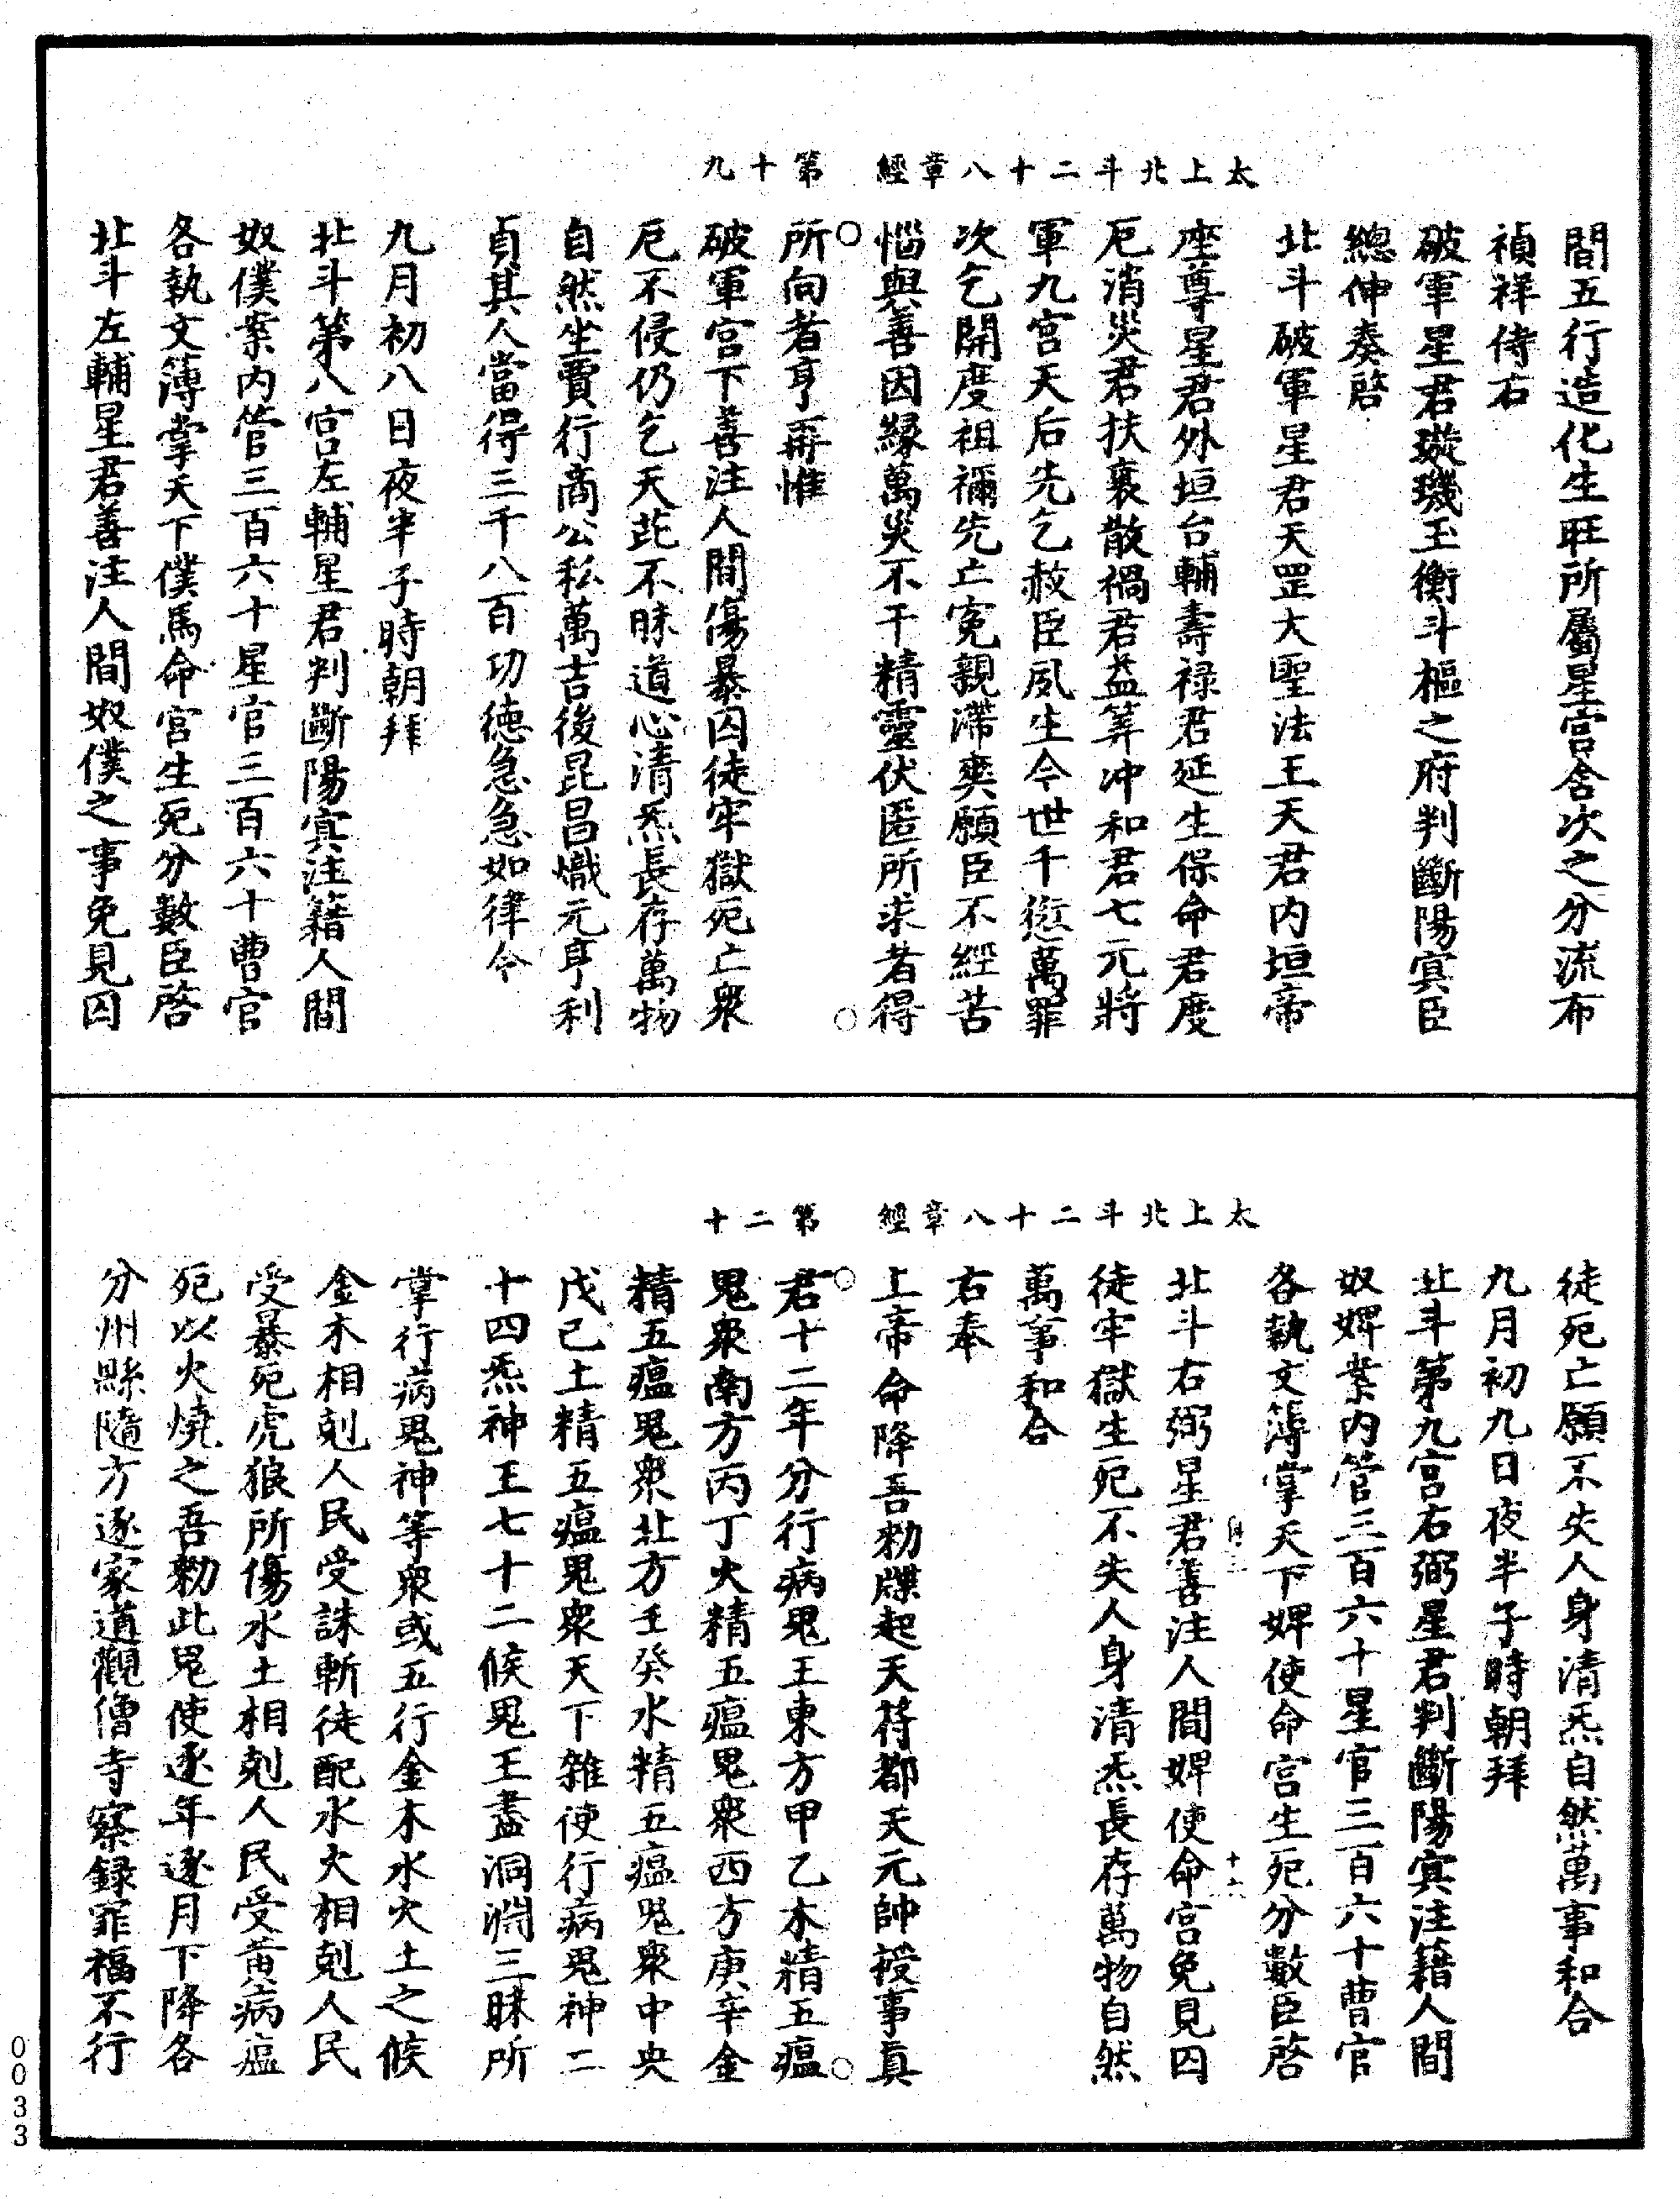 太上北斗二十八章經　第十九
間五行造化生旺所屬星宮舍次之分流布
禎祥侍右
破軍星君璇璣玉衡斗樞之府判斷陽㝠臣
總伸奏啓
北斗破軍星君天罡大聖法王天君內垣帝
座尊星君外垣台輔壽祿君延生保命君度
厄消災君扶衰散禍君益筭冲和君七元將
軍九宮天后先乞赦臣夙生今世千愆萬罪
次乞開度祖禰先亡寃親滯爽願臣不經苦
惱與善因緣萬災不干精靈伏匿所求者得
所向者亨再惟
破軍宮下善注人間傷暴囚徒牢獄死亡衆
厄不侵仍乞天茈不昧道心清炁長存萬物
自然坐賈行商公私萬吉後昆昌熾元亨利
貞其人當得三千八百功德急急如律令
九月初八日夜半子時朝拜
北斗第八宮左輔星君判斷陽㝠注籍人間
奴僕案內管三百六十星官三百六十曹官
各執文簿掌天下僕馬命宮生死分數臣啓
北斗左輔星君善注人間奴僕之事免見囚
太上北斗二十八章經　第二十
徒死亡願不失人身清炁自然萬事和合
九月初九日夜半子時朝拜
北斗第九宮右弼星君判斷陽㝠注籍人間
奴婢案內管三百六十星官三百六十曹官
各執文簿掌天下婢使命宮生死分數臣啓
北斗右弼星君善注人間婢使命宮免見囚
徒牢獄生死不失人身清炁長存萬物自然
萬事和合
右奉
上帝命降吾勑牒起天符都天元帥授事眞
君十二年分行病鬼王東方甲乙木精五瘟
鬼衆南方丙丁火精五瘟鬼衆西方庚辛金
精五瘟鬼衆北方壬癸水精五瘟鬼衆中央
戊己土精五瘟鬼衆天下雜使行病鬼神二
十四炁神王七十二候鬼王盡洞淵三昧所
掌行病鬼神等衆或五行金木水火土之候
金木相剋人民受誅斬徒配水火相剋人民
受暴死虎狼所傷水土相剋人民受黃病瘟
死以火燒之吾勑此鬼使逐年逐月下降各
分州縣隨方逐家道觀僧寺察錄罪福不行
0033